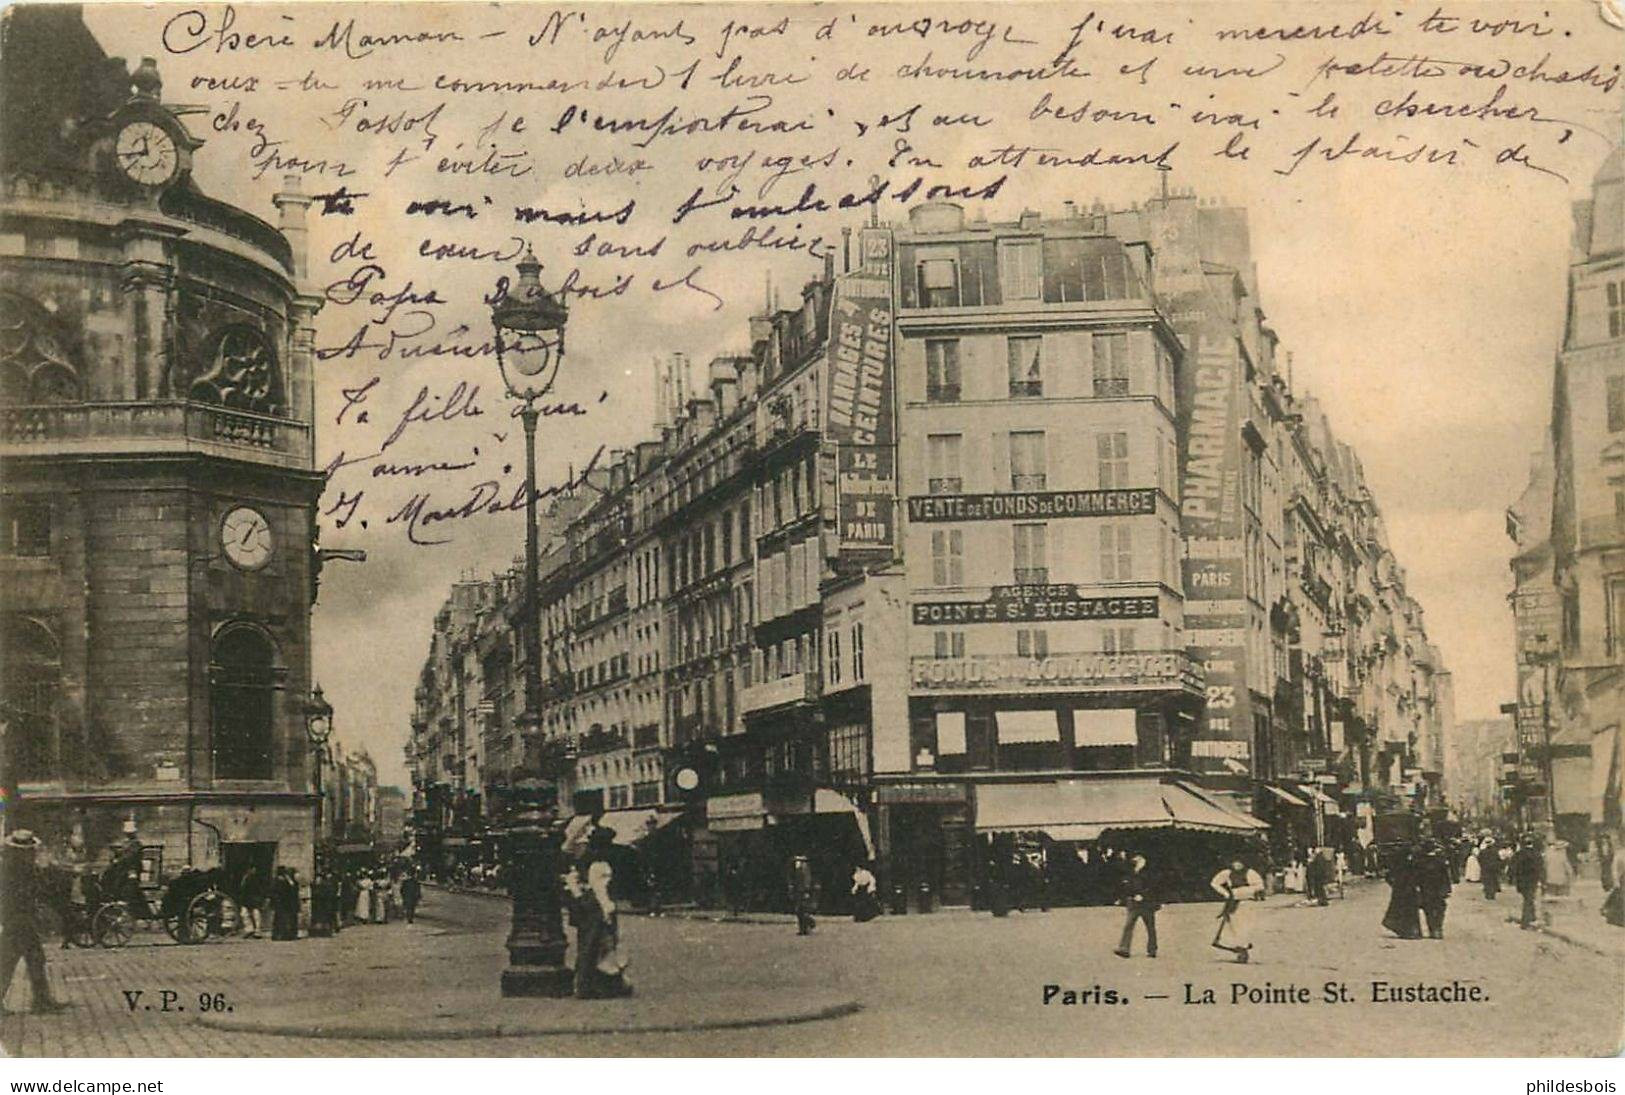 Chère Maman – N'ayant pas d'ouvrage j'irai mercredi te voir.
veux-tu me commander 1 livre de choucroute et une palette ou chasis
chez Passot je l'emporterai, et au besoin irai le chercher,
pour t'éviter deux voyages. En attendant le plaisir de
te voir nous t'embrassons
de cœur sans oublier
Papa Dubois et
Adrienne
Ta fille qui
t'aime.
23
RUE
BANDAGES
CEINTURES
LE
DE
PARIS
PHARMACIE
VENTE DE FONDS DE COMMERCE
PARIS
AGENCE
POINTE St. EUSTACHE
FONDS DE COMMERCE
23
RUE
AGENCE
V. P. 96.
Paris. — La Pointe St. Eustache.
www.delcampe.net
phildesbois